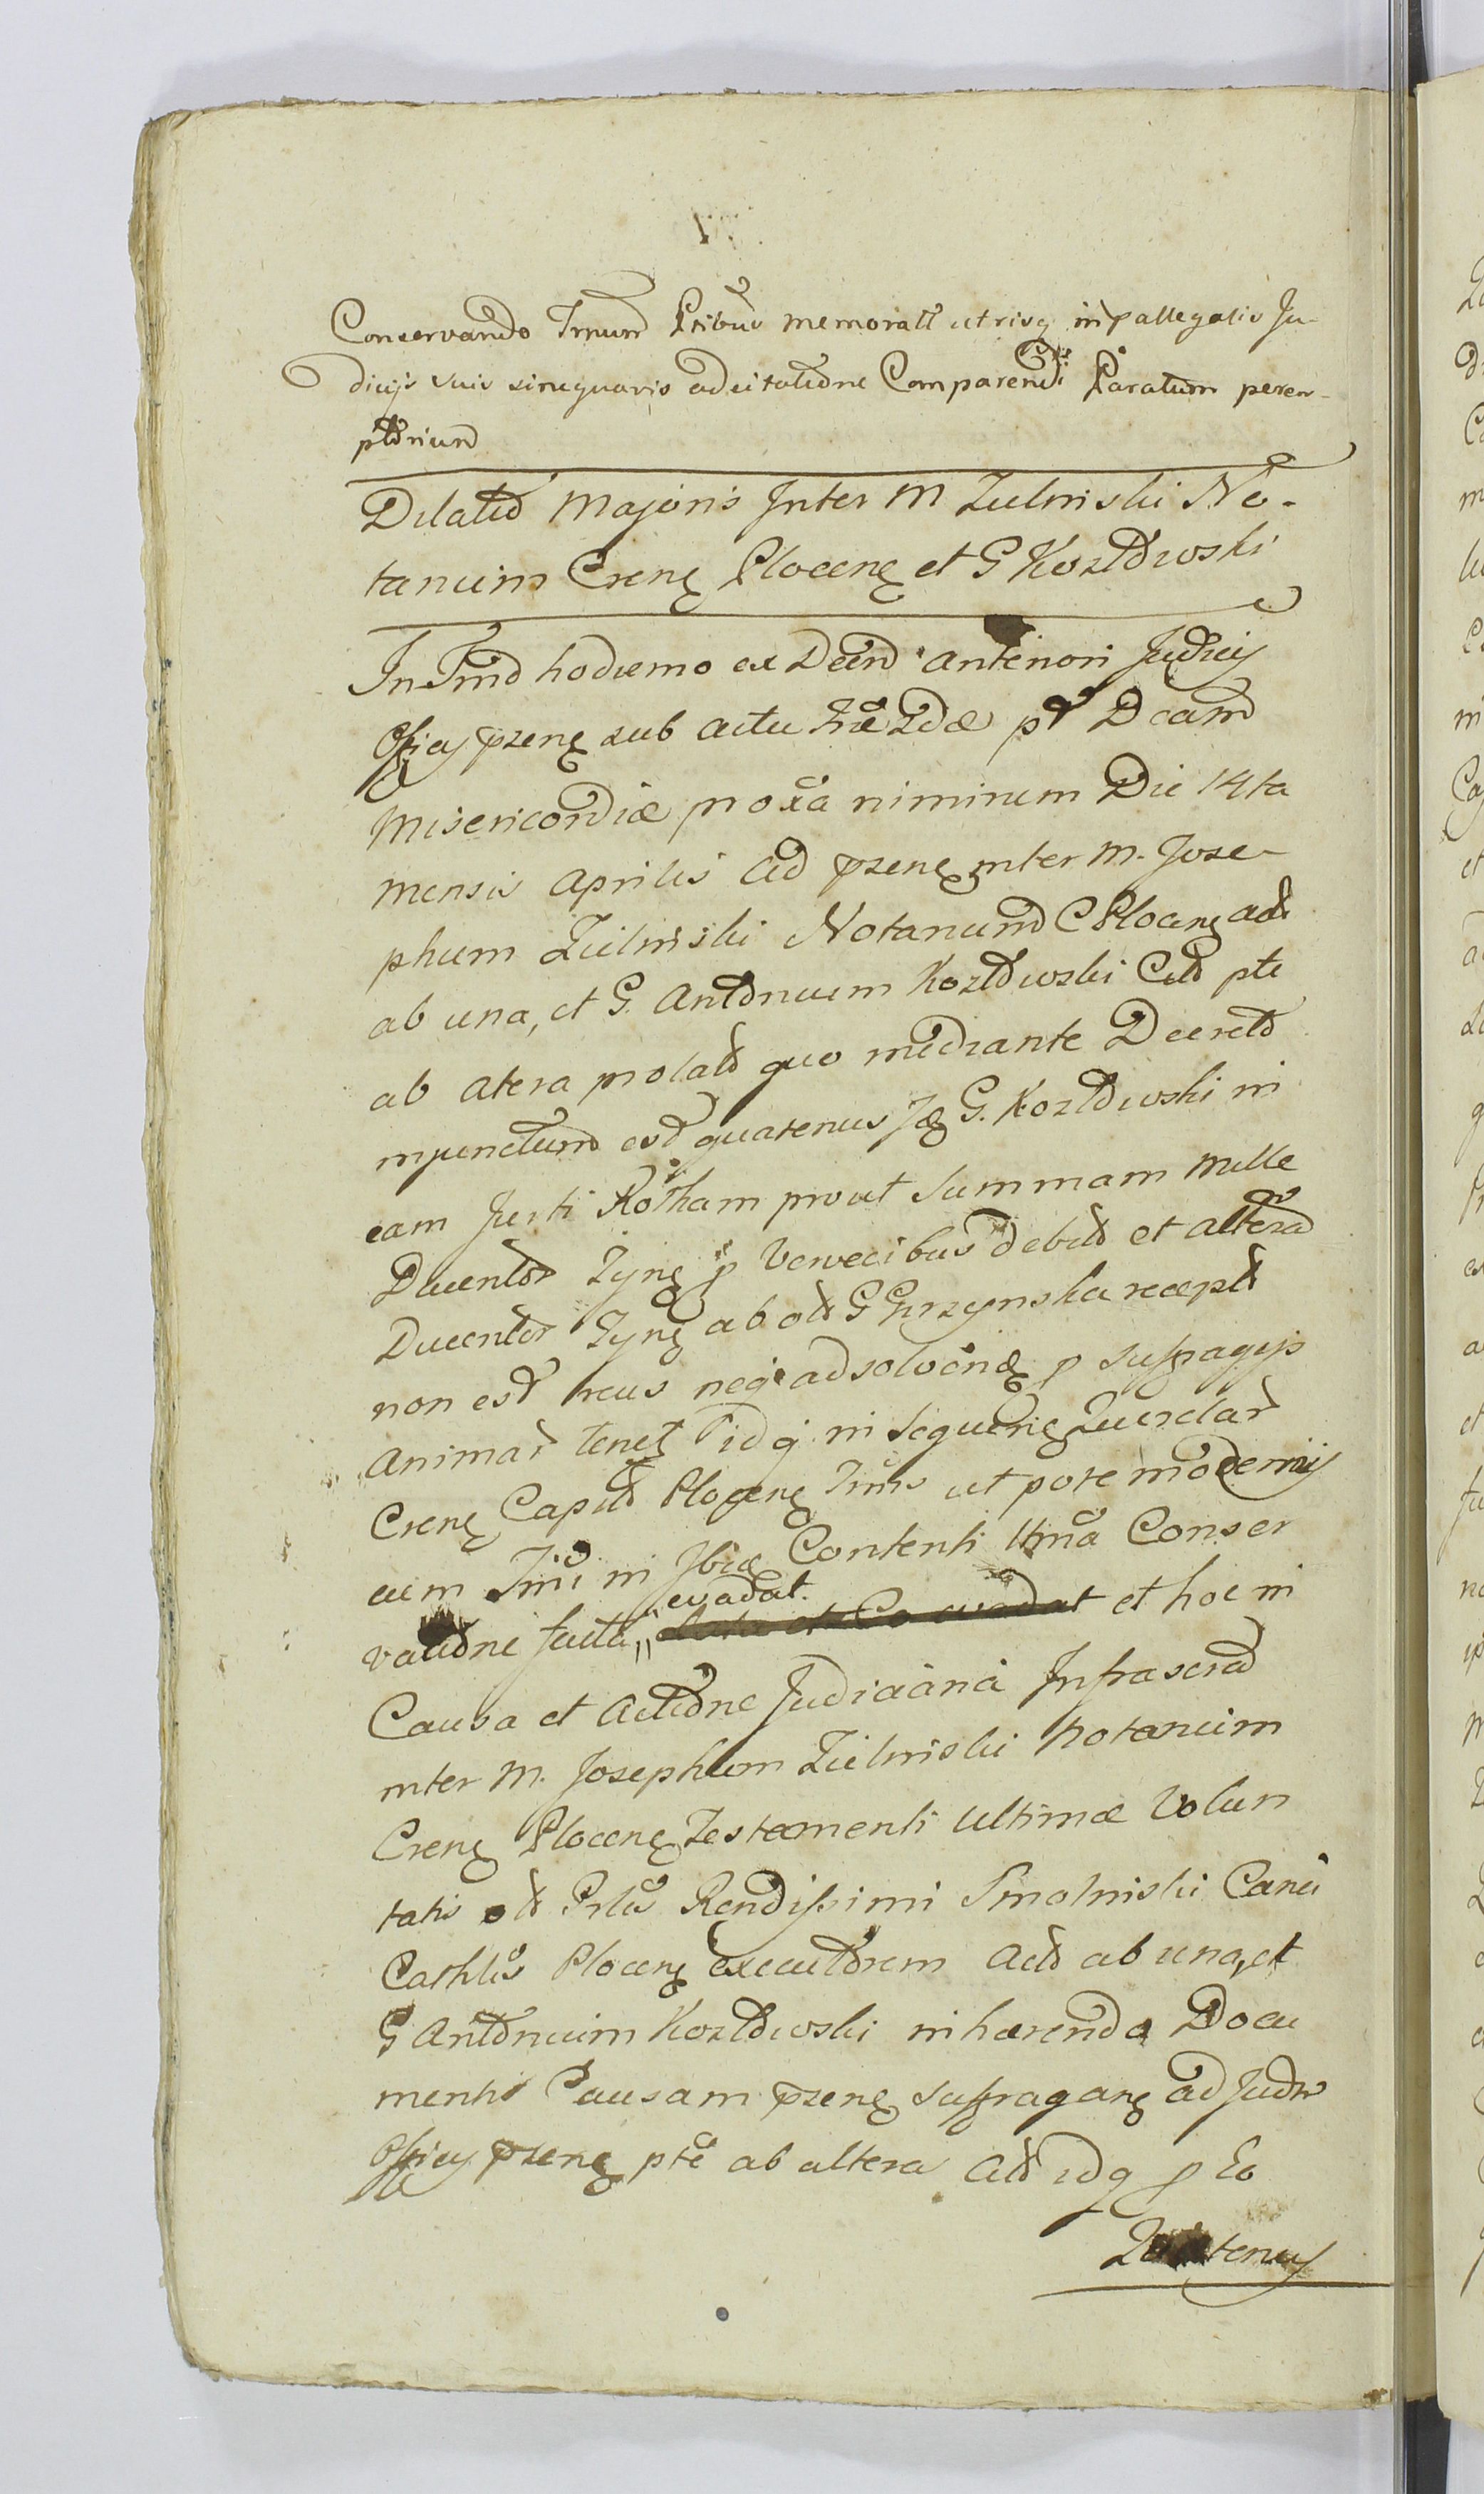 Conservando Trnum Ptibus memoratt utrisq in pallegatis Ju-
dicijs suis sineguavis adcitatione Comparendi Paratum peren-
ptorium
Dilatio Majoris Inter M Zielinski No-
tarium Crenę Plocenę et G Kozłowski
In Tmo hodierno ex Decro anteriori Judicij
Officij przenę sub actu Friæ 2dæ pt Dcam
Misericordiæ proxa nimirum Die 14ta
Mensis Aprilis ad przenę inter M. Jose-
phum Zielinski Notarium C Plocenę act
ab una, et G. Antonium Kozłowski Cit pte
ab altera prolato quo mediante Decreto
injunctum est quatenus G. Kozłowski in
eam Jurti Rotham prout summam mille
Ducentor Tynę p Vervecibus debit et altera
Ducentor Tynę ab ol G Gurzynska recept
non est reus neq adsolvenđ p suffragijs
animar tenet idq in sequenę Querelar
Crenę Capit Plocenę Tmis ut pote modernis
cum Tmi in Contenti Conser
vatione facta, evadat. et hoc in
Causa et Actione Judiciaria Infrascra
inter M. Josephum Zielinski Notarium
Crenę Plocenę Testamenti Ultimæ Volun
tatis ol Prlis Rendissimi Smolinski Canci
Cathlis Plocenę executorem Act ab una, et
G Antonium Kozłowski inhærendo Docu
mentis Causam przenę suffraganę ad Judm
Officij przenę pte ab altera Cit idq p Eo
Quatenus